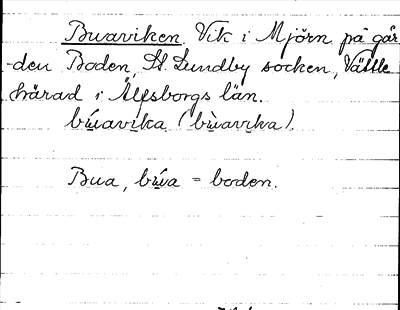 Buaviken. Vik i Mjörn på går-
-den Boden, St. Lundby socken, Vättle
härad i Älfsborgs län.
búavika (bùavika).
Bua, búa = boden.